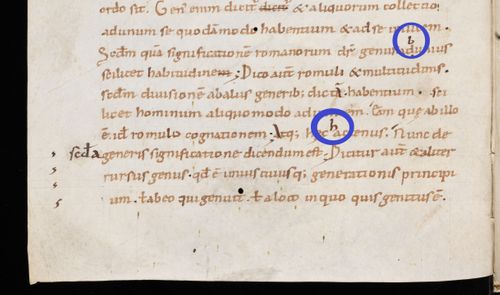 ordo sit. Gen' enim dicit' & aliquorum collectio
adunum se quodāmodo habentium & adse
Scdm̄ quā significationē romanorum dr̄ genus
scilicet habitudinem; Dico aut̄ romuli & multitudinis
scdm̄ divisionē abaliis generib; dictā. habentium. sci
licet hominum aliquomodo Eam que abillo
ē. id romulo cognationem. Atq; hec actenus. Nunc de
scd̄a generis significatione dicendum est. Dicitur aut̄ & aliter
rursus genus. qd̄ ē uniuscuiusq; generationis principi
um. ł abeo quigenuit. ł aloco inquo quis genitus ē.